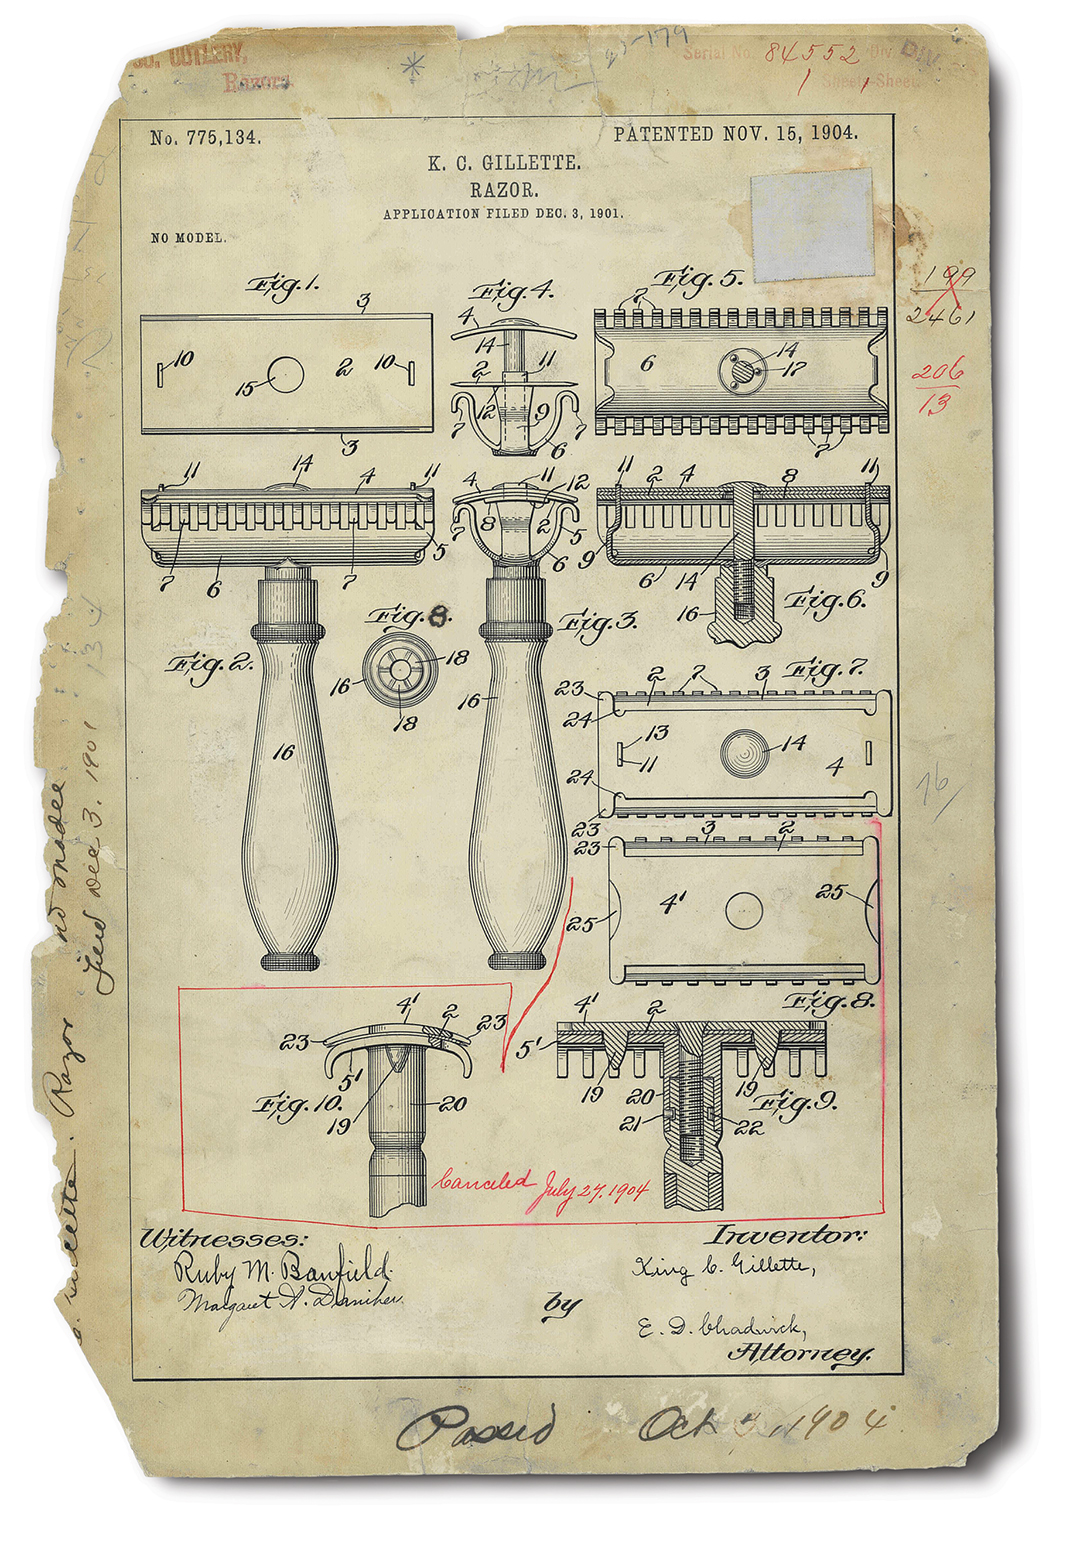 CUTLERY,
Razors.
Serial No. 84552 Div
DIV.
Sheets-Sheet
No. 775,134.
PATENTED NOV. 15, 1904.
K. C. GILLETTE.
RAZOR.
APPLICATION FILED DEC. 3, 1901.
NO MODEL.
199
2461
206
13
Fig. 1.
3
10
15
2
10
3
Fig. 4.
4
14
11
2
12
9
7
7
6
Fig. 5.
7
6
14
17
7
11
14
4
11
7
6
7
5
Fig. 2.
16
4
11
12
8
2
5
7
6
Fig. 3.
16
11
2
4
8
11
9
6
14
9
16
Fig. 6.
Fig. 8.
18
16
18
23
2
7
3
Fig. 7.
24
13
11
14
4
24
23
3
2
23
4'
25
25
Fig. 8.
4'
2
23
23
5'
Fig. 10.
19
20
4'
2
5'
19
20
19
21
22
Fig. 9.
Canceled July 27, 1904
Witnesses:
Ruby M. Banfield.
Inventor:
King C. Gillette,
by
E. D. Chadwick,
Attorney.
Passed Oct 1904
Razor no model
Filed Dec 3. 1901
134